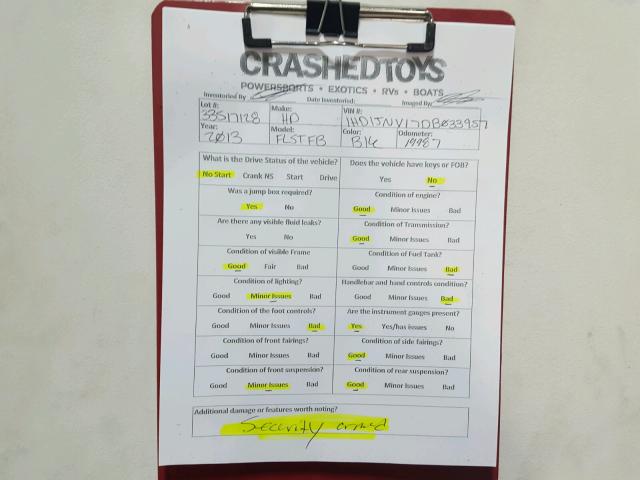 CRASHEDTOYS
POWERSPORTS • EXOTICS • RVs • BOATS
Inventoried By Date Inventoried: Imaged By:
Lot #: 33517128 Make: HD VIN #: 1HD1JNV17DB033957
Year: 2013 Model: FLSTFB Color: Blk Odometer: 14987
What is the Drive Status of the vehicle?
No Start Crank NS Start Drive
Does the vehicle have keys or FOB?
Yes No
Was a jump box required?
Yes No
Condition of engine?
Good Minor Issues Bad
Are there any visible fluid leaks?
Yes No
Condition of Transmission?
Good Minor Issues Bad
Condition of visible Frame
Good Fair Bad
Condition of Fuel Tank?
Good Minor Issues Bad
Condition of lighting?
Good Minor Issues Bad
Handlebar and hand controls condition?
Good Minor Issues Bad
Condition of the foot controls?
Good Minor Issues Bad
Are the instrument gauges present?
Yes Yes/has issues No
Condition of front fairings?
Good Minor Issues Bad
Condition of side fairings?
Good Minor Issues Bad
Condition of front suspension?
Good Minor Issues Bad
Condition of rear suspension?
Good Minor Issues Bad
Additional damage or features worth noting?
Security armed